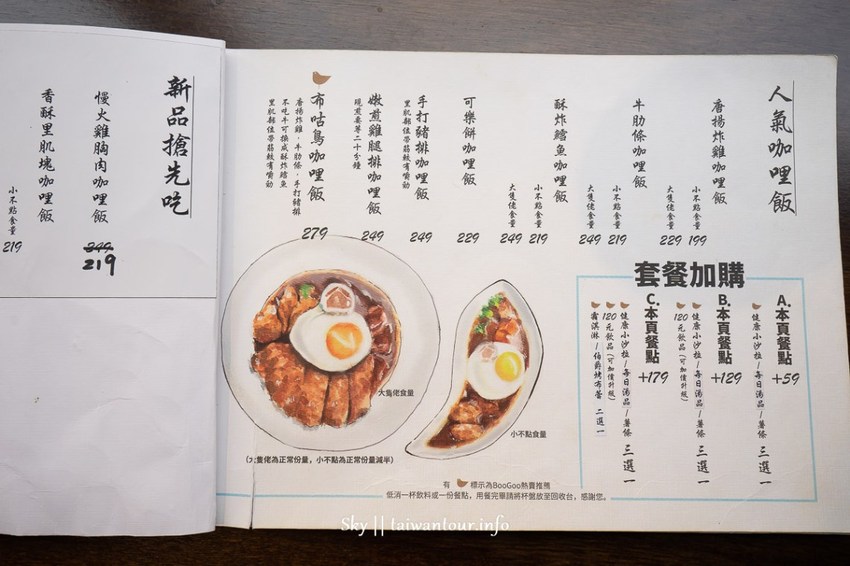 人氣咖哩飯
唐揚炸雞咖哩飯
小不點食量 199
大隻佬食量 229
牛肋條咖哩飯
小不點食量 219
大隻佬食量 249
酥炸鱈魚咖哩飯
小不點食量 219
大隻佬食量 249
可樂餅咖哩飯
229
手打豬排咖哩飯
里肌部位帶筋較有嚼勁
249
嫩煎雞腿排咖哩飯
現煎要等二十分鐘
249
布咕鳥咖哩飯
唐揚炸雞、牛肋條、手打豬排
不吃牛可換成酥炸鱈魚
里肌部位帶筋較有嚼勁
279
套餐加購
A.本頁餐點
+59
健康小沙拉/每日湯品/薯條 三選一
B.本頁餐點
+129
健康小沙拉/每日湯品/薯條 三選一
120元飲品(可加價升級)
C.本頁餐點
+179
健康小沙拉/每日湯品/薯條 三選一
120元飲品(可加價升級)
霜淇淋/伯爵烤布蕾 二選一
大隻佬食量
小不點食量
(大隻佬為正常份量,小不點為正常份量減半)
有 標示為BooGoo熱賣推薦
低消一杯飲料或一份餐點,用餐完畢請將杯盤放至回收台,感謝您。
新品搶先吃
慢火雞胸肉咖哩飯
249
219
香酥里肌塊咖哩飯
小不點食量
219
Sky || taiwantour.info